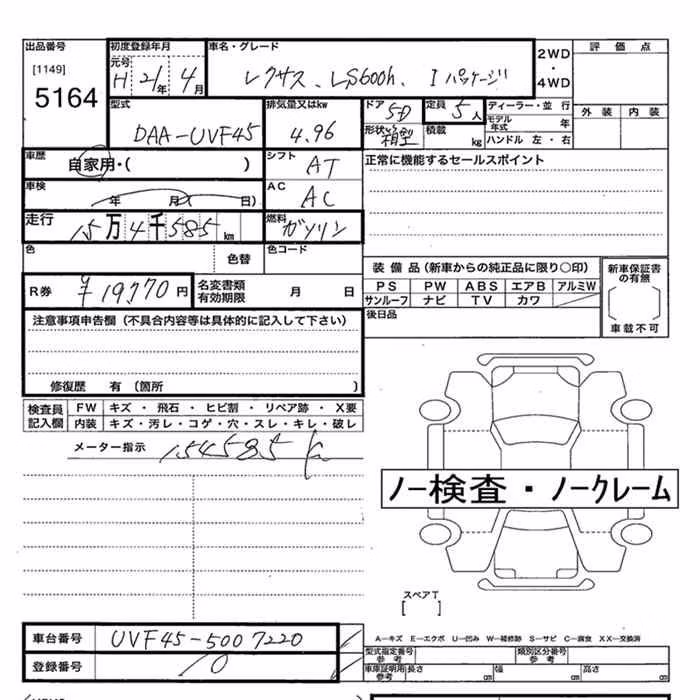 出品番号 初度登録年月 車名・グレード 2WD・4WD 評価点
[1149] 元号 H 21年 4月 レクサス、LS600h、Iパッケージ
5164 型式 排気量又はkw ドア 5D 定員 5人 ディーラー・並行 外装 内装
DAA-UVF45 4.96 形状 箱型 積載 kg モデル年式 年
ハンドル 左・右
車歴 自家用・( ) シフト AT 正常に機能するセールスポイント
車検 年 月 日) AC AC
走行 15万4千585km 燃料 ガソリン
色 色替 色コード
装備品(新車からの純正品に限り○印) 新車保証書の有無
R券 ¥19770円 名変書類有効期限 月 日 PS PW ABS エアB アルミW
サンルーフ ナビ TV カワ
注意事項申告欄(不具合内容等は具体的に記入して下さい) 後日品 車載不可
修復歴 有(箇所 )
検査員記入欄 FW キズ・飛石・ヒビ割・リペア跡・X要
内装 キズ・汚レ・コゲ・穴・スレ・キレ・破レ
メーター指示 154585
ノー検査・ノークレーム
スペアT
[ ]
車台番号 UVF45-5007220 A―キズ E―エクボ U―凹み W―補修跡 S―サビ C―腐食 XX―交換済
型式指定番号 参考 類別区分番号 参考
登録番号 車庫証明用 参考 長さ cm 幅 cm 高さ cm